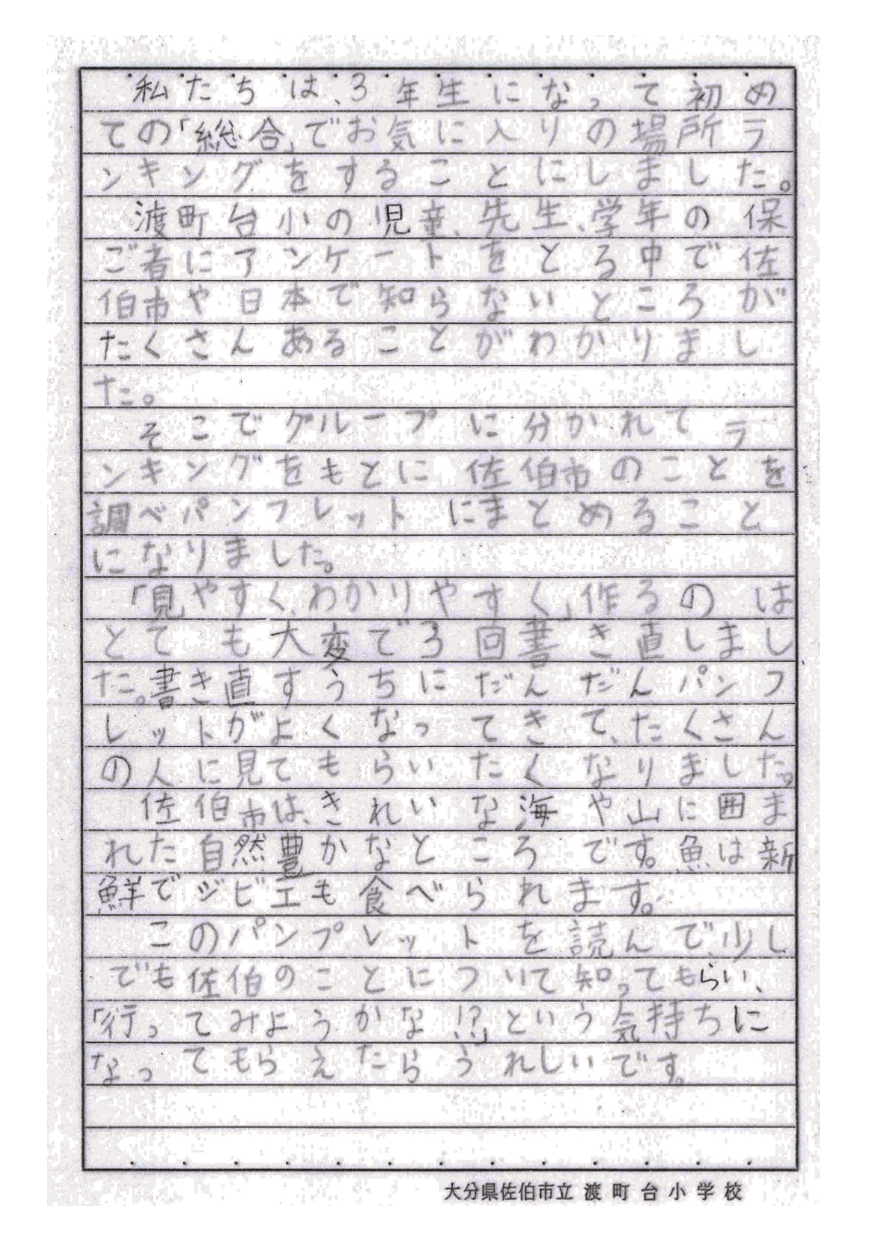 私たちは、3年生になって初め
ての「総合」でお気に入りの場所ラ
ンキングをすることにしました。
渡町台小の児童、先生、学年の保
ご者にアンケートをとる中で佐
伯市や日本で知らないところが
たくさんあることがわかりまし
た。
そこでグループに分かれてラ
ンキングをもとに佐伯市のことを
調べパンフレットにまとめること
になりました。
「見やすく、わかりやすく」作るのは
とても大変で3回書き直しまし
た。書き直すうちにだんだんパンフ
レットがよくなってきて、たくさん
の人に見てもらいたくなりました。
佐伯市は、きれいな海や山に囲ま
れた自然豊かなところです。魚は新
鮮でジビエも食べられます。
このパンプレットを読んで少し
でも佐伯のことについて知ってもらい、
「行ってみようかな!?」という気持ちに
なってもらえたらうれしいです。
大分県佐伯市立渡町台小学校